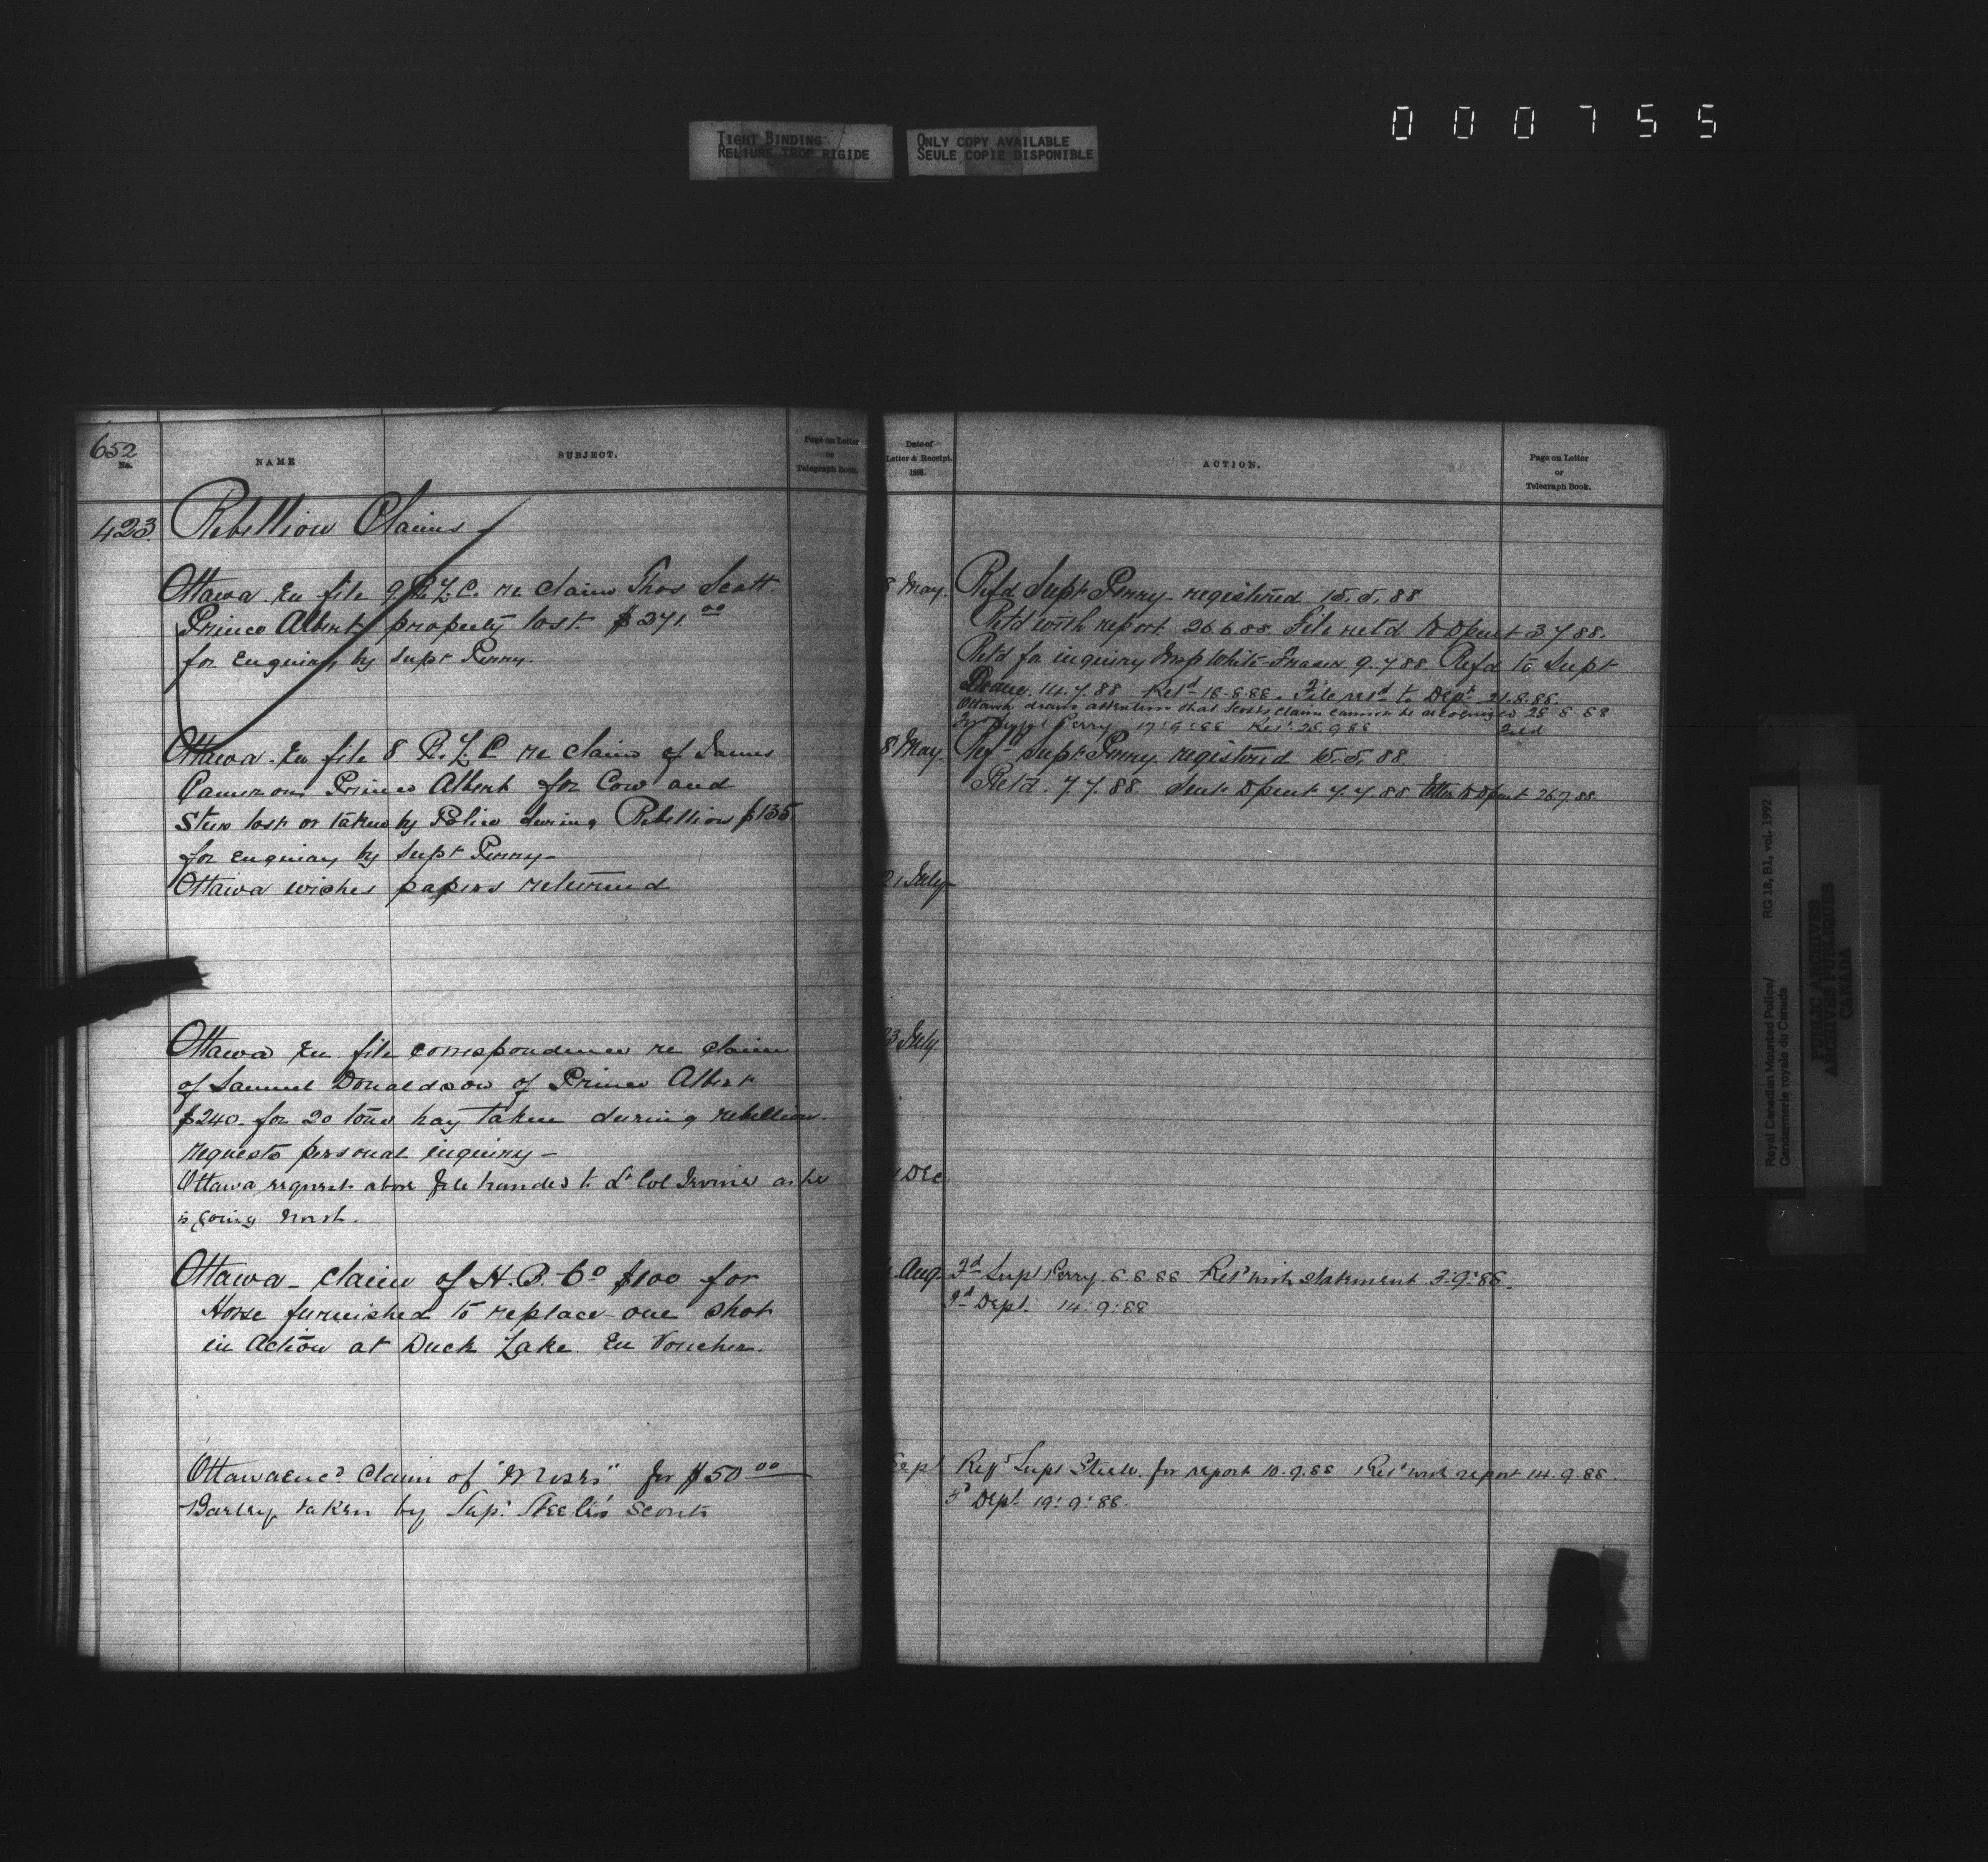 000755
TIGHT BINDING
RELIURE TROP RIGIDE
ONLY COPY AVAILABLE
SEULE COPIE DISPONIBLE
652
No.
NAME
SUBJECT.
Page on Letter
or
Telegraph Book.
423. Rebellion Claims
Ottawa. En file 9 R.L.C. re claim Thos Scott.
Prince Albert property lost. $271.00
for enquiry by Supt Perry.
Ottawa. En file 8 R.L.C re claim of James
Cameron Prince Albert for Cow and
Steer lost or taken by Police during Rebellion $135.
for enquiry by Supt Perry—
Ottawa wishes papers returned
Ottawa En file correspondence re claim
of Samuel Donaldson of Prince Albert
$240. for 20 tons hay taken during rebellion.
requests personal inquiry—
Ottawa requests above file handed to Lt Col Irvine as he
is going north.
Ottawa - claim of H.B. Co $100 for
Horse furnished to replace one shot
in Action at Duck Lake. En Voucher.
Ottawa encd claim of "Moses" for $50 00
Barley taken by Supt Steele's Scouts
Date of
Letter & Receipt.
1888.
ACTION.
Page on Letter
or
Telegraph Book.
8 May. Refd Supt Perry - registered 15.5.88
Retd with report 26.6.88. File retd to Dpent 3.7.88.
Retd for inquiry Insp White-Fraser 9.7.88. Refd to Supt
Deane. 14.7.88 Retd 18.8.88. File retd to Dept 21.8.88.
Ottawa draws attention that Scotts claim cannot be recognized 28.8.88
Supt Perry 17.9.88 Retd 25.9.88
8 May. Refd Supt Perry registered 15.5.88.
Retd. 7.7.88 Sent Dpent 7.7.88. Letter to Dpent 26.7.88.
21 July
23 July
Dec
Aug. Fd Supt Perry 6.8.88 Retd with statement 3.9.88.
Fd Dept. 14.9.88
Sept Refd Supt Steele for report 10.9.88 Retd with report 14.9.88.
Fd Dept. 19.9.88.
Royal Canadian Mounted Police/
Gendarmerie royale du Canada
RG 18, B1, vol. 1992
PUBLIC ARCHIVES
ARCHIVES PUBLIQUES
CANADA